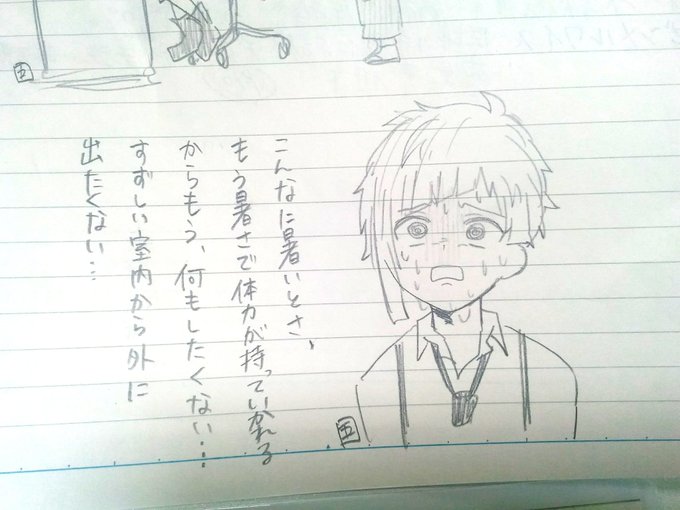 こんなに暑いとさ、
もう暑さで体力が持っていかれる
からもう、何もしたくない…
すずしい室内から外に
出たくない…
五
五